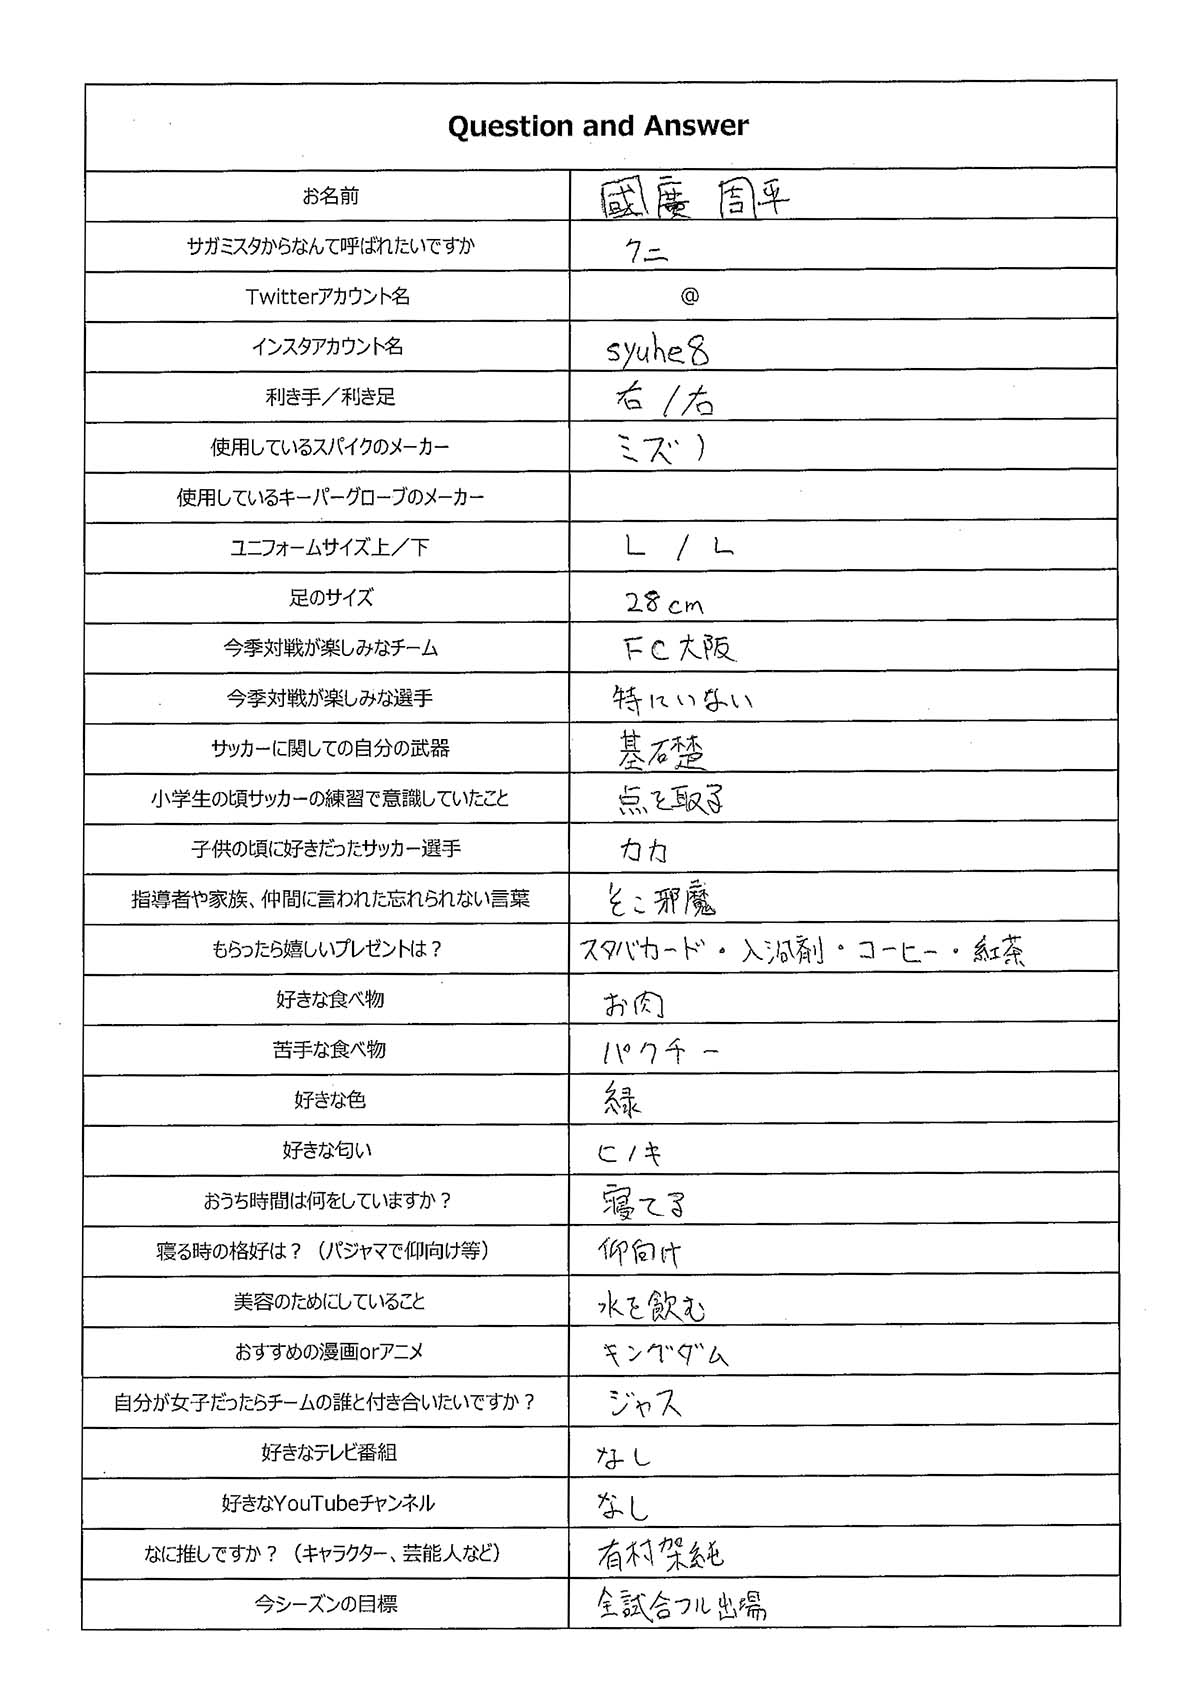 Question and Answer
お名前 國廣 周平
サガミスタからなんて呼ばれたいですか クニ
Twitterアカウント名 @
インスタアカウント名 syuhe8
利き手／利き足 右 / 右
使用しているスパイクのメーカー ミズノ
使用しているキーパーグローブのメーカー
ユニフォームサイズ上／下 L / L
足のサイズ 28cm
今季対戦が楽しみなチーム FC大阪
今季対戦が楽しみな選手 特にいない
サッカーに関しての自分の武器 基礎
小学生の頃サッカーの練習で意識していたこと 点を取る
子供の頃に好きだったサッカー選手 カカ
指導者や家族、仲間に言われた忘れられない言葉 そこ邪魔
もらったら嬉しいプレゼントは？ スタバカード・入浴剤・コーヒー・紅茶
好きな食べ物 お肉
苦手な食べ物 パクチー
好きな色 緑
好きな匂い ヒノキ
おうち時間は何をしていますか？ 寝てる
寝る時の格好は？（パジャマで仰向け等） 仰向け
美容のためにしていること 水を飲む
おすすめの漫画orアニメ キングダム
自分が女子だったらチームの誰と付き合いたいですか？ ジャス
好きなテレビ番組 なし
好きなYouTubeチャンネル なし
なに推しですか？（キャラクター、芸能人など） 有村架純
今シーズンの目標 全試合フル出場